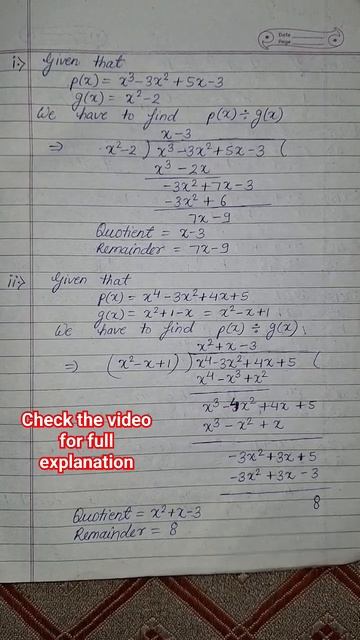 Date
Page
i:> Given that
p(x) = x³-3x² + 5x-3
g(x) = x²-2
We have to find p(x) ÷ g(x)
x-3
⇒ x²-2 ) x³-3x²+5x-3 (
x³ - 2x
-3x²+7x-3
-3x² + 6
7x-9
Quotient = x-3
Remainder = 7x-9
ii:> Given that
p(x) = x⁴-3x²+4x+5
g(x) = x²+1-x = x²-x+1
We have to find p(x) ÷ g(x)
x²+x-3
⇒ (x²-x+1) ) x⁴-3x²+4x+5 (
x⁴-x³+x²
x³-4x²+4x+5
x³-x²+x
-3x²+3x+5
-3x²+3x-3
8
Quotient = x²+x-3
Remainder = 8
Check the video
for full
explanation